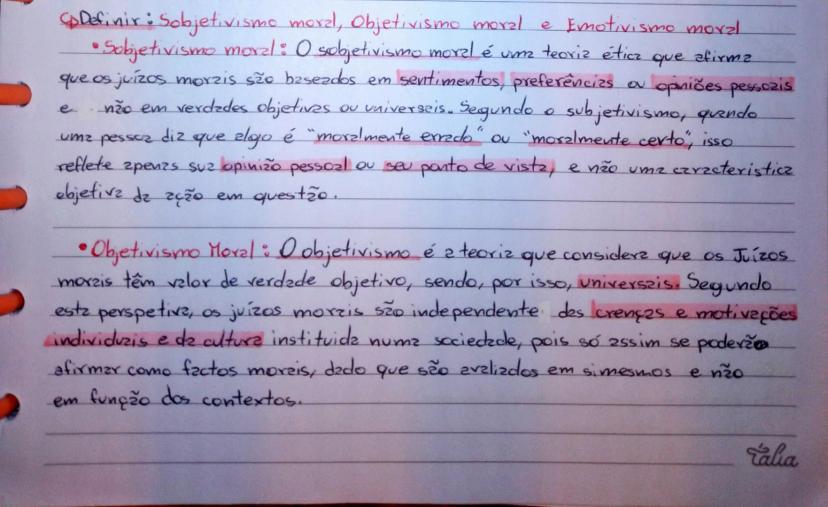 ↳Definir: Sobjetivismo moral, Objetivismo moral e Emotivismo moral
• Sobjetivismo moral: O sobjetivismo moral é uma teoria ética que afirma
que os juízos morais são baseados em sentimentos, preferências ou opiniões pessoais
e não em verdades objetivas ou universais. Segundo o subjetivismo, quando
uma pessoa diz que algo é "moralmente errado" ou "moralmente certo", isso
reflete apenas sua opinião pessoal ou seu ponto de vista, e não uma caracteristica
objetiva da ação em questão.
• Objetivismo Moral: O objetivismo é a teoria que considera que os Juízos
morais têm valor de verdade objetivo, sendo, por isso, universais. Segundo
esta perspetiva, os juízos morais são independente das crenças e motivações
individuais e da cultura instituida numa sociedade, pois só assim se poderão
afirmar como factos morais, dado que são avaliados em simesmos e não
em função dos contextos.
Tália